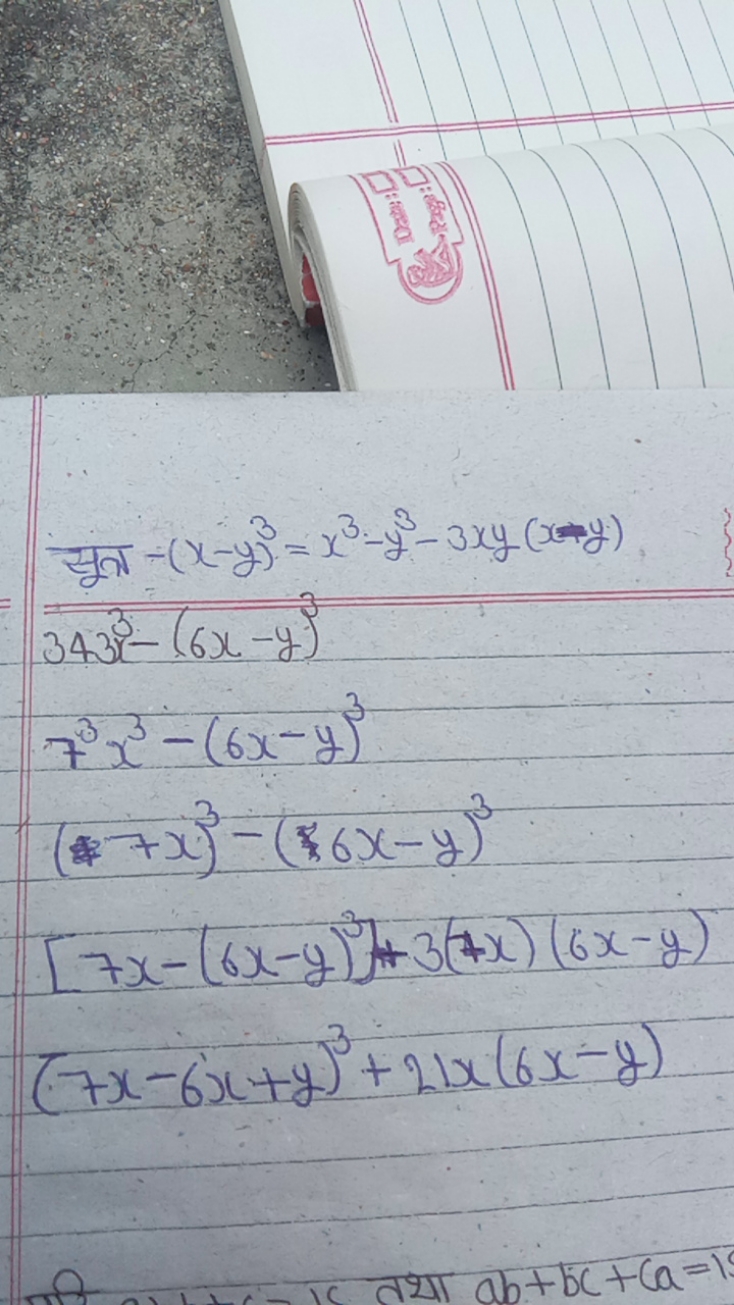 Date:
Page:
सूत्र - (x-y)³ = x³-y³-3xy(x-y)
343x³ - (6x-y)³
7³x³ - (6x-y)³
(7x)³ - (6x-y)³
[7x-(6x-y)³]+3(7x)(6x-y)
(7x-6x+y)³+21x(6x-y)
तथा ab+bc+ca=